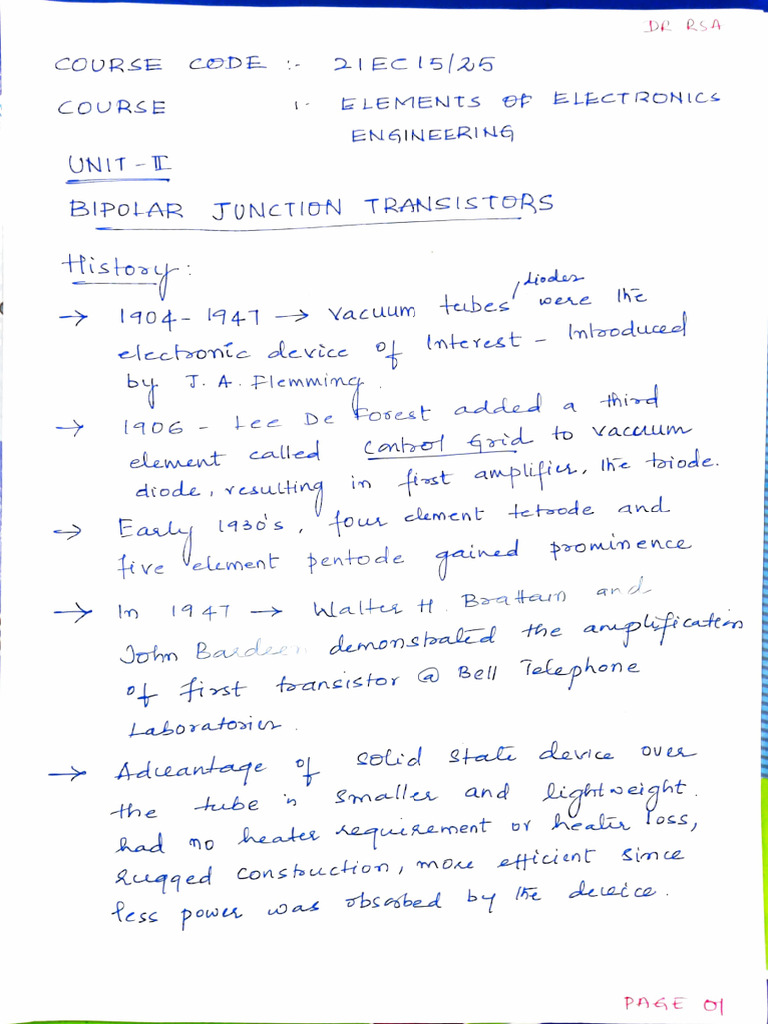 DR RSA
COURSE CODE :- 21EC15/25
COURSE :- ELEMENTS OF ELECTRONICS
ENGINEERING
UNIT - II
BIPOLAR JUNCTION TRANSISTORS
History:
→ 1904 - 1947 → Vacuum tubes, diodes were the
electronic device of Interest - Introduced
by J. A. Flemming.
→ 1906 - Lee De Forest added a third
element called Control Grid to vacuum
diode, resulting in first amplifier, the triode.
→ Early 1930's, four element tetrode and
five element pentode gained prominence
→ In 1947 → Walter H. Brattain and
John Bardeen demonstrated the amplification
of first transistor @ Bell Telephone
Laboratories.
→ Advantage of solid state device over
the tube is smaller and lightweight.
had no heater requirement or heater loss,
rugged construction, more efficient since
less power was obsorbed by the device.
PAGE 01